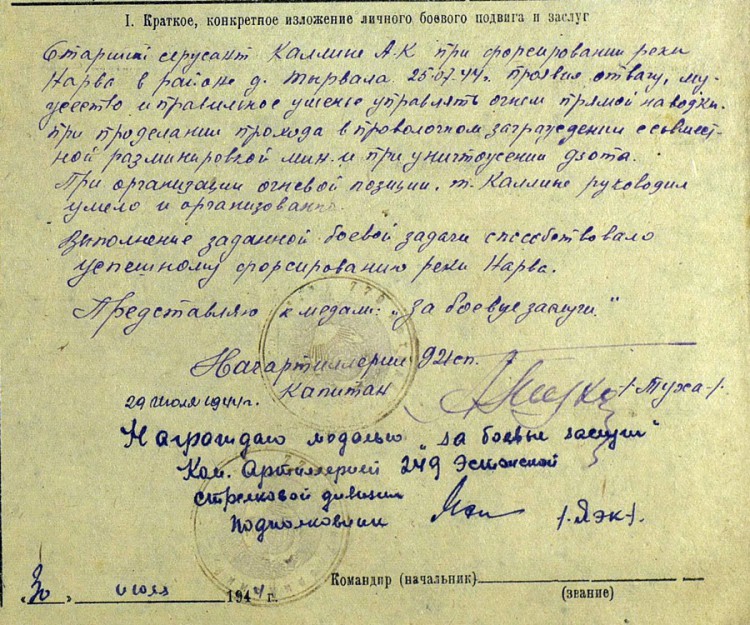 I. Краткое, конкретное изложение личного боевого подвига и заслуг
Старший сержант Каллине А.К при форсировании реки
Нарва в районе д. Тырвала 25.07.44г. проявил отвагу, му-
жество и правильное уменье управлять огнем прямой наводки.
при проделании прохода в проволочном заграждении с
разминировкой мин. и при уничтожении дзота.
При организации огневой позиции. т. Каллине руководил
умело и организованно.
Выполнение заданной боевой задачи способствовало
успешному форсированию реки Нарва.
Представляю к медали: „За боевые заслуги."
Нач артиллерии 921сп.
Капитан /-Муха-/.
29 июля 1944г.
Награждаю медалью „за боевые заслуги"
Ком. Артиллерией 249 Эстонской
стрелковой дивизии
Подполковник /-Яэк-/.
Командир (начальник)
(звание)
„30" июля 1944 г.